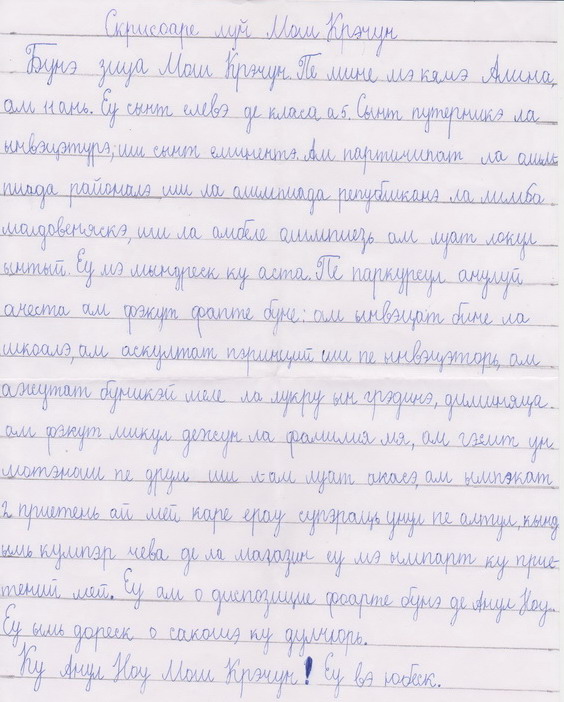 Скрисоаре луй Мош Крэчун
Бунэ зиуа Мош Крэчун. Пе мине мэ кямэ Алина,
ам 11 ань. Еу сынт елевэ де класа а 5. Сынт путерникэ ла
ынвэцэтурэ, ши сынт еминентэ. Ам партичипат ла олим-
пиада районалэ ши ла олимпиада републиканэ ла лимба
молдовеняскэ, ши ла амбеле олимпиезь ам луат локул
ынтый. Еу мэ мындреск ку аста. Пе паркурсул анулуй
ачеста ам фэкут фапте буне: ам ынвэцат бине ла
школэ, ам аскултат пэринций ши пе ынвэцэторь, ам
ажутат буникэй меле ла лукру ын грэдинэ, диминяца
ам фэкут микул дежун ла фамилия мя, ам гэсит ун
мотэнаш пе друм ши л-ам луат акасэ, ам ымпэкат
2 приетень ай мей каре ерау супэраць унул пе алтул, кынд
ымь кумпэр чева де ла магазин еу мэ ымпарт ку прие-
тений мей. Еу ам о диспозицие фоарте бунэ де Анул Ноу.
Еу ымь дореск о сакошэ ку дулчюрь.
Ку Анул Ноу Мош Крэчун! Еу вэ юбеск.